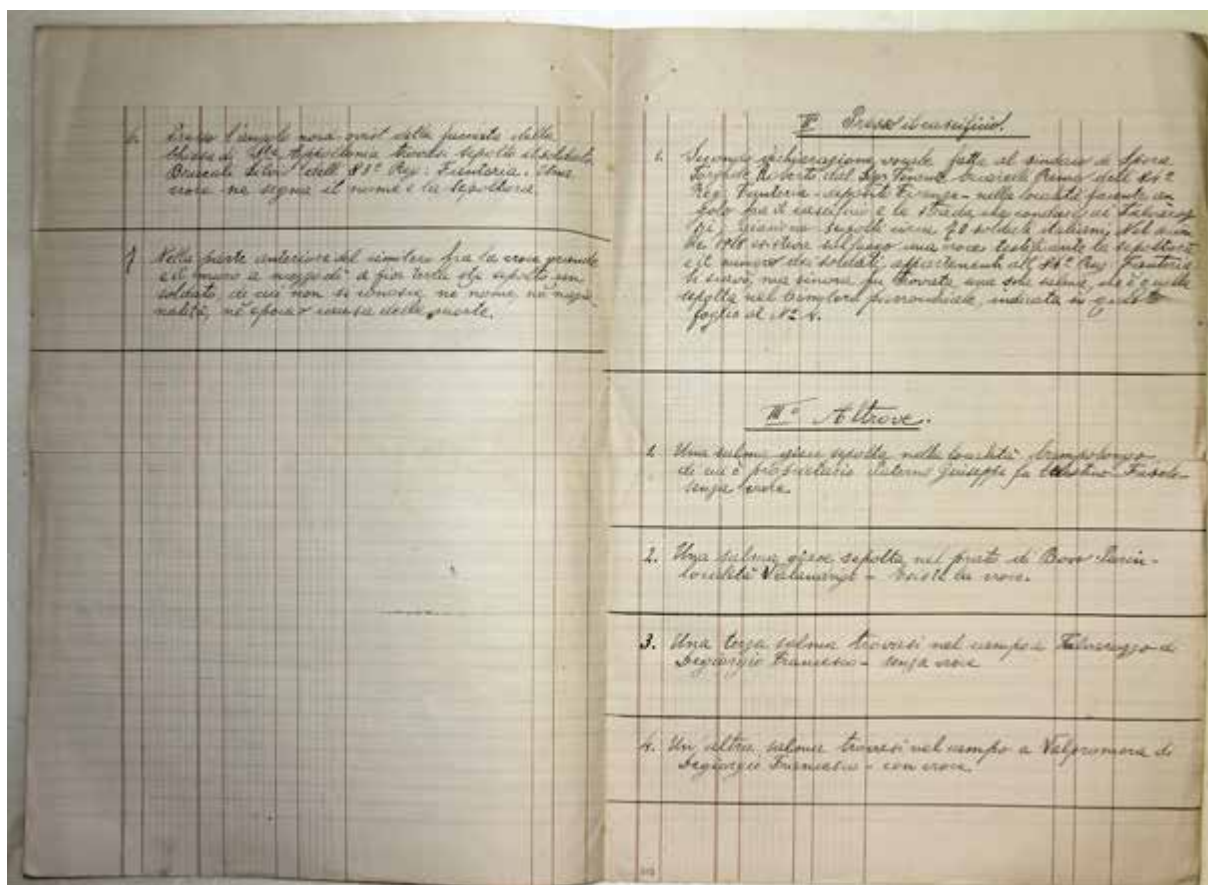 6. Presso l'angolo nord-ovest della facciata della
Chiesa di Sta Appollonia trovasi sepolto il soldato
dell' 81º Reg. Fanteria. Una
croce ne segna il nome e la sepoltura.
7 Nella parte anteriore del cimitero fra la croce grande
e il muro a mezzodì a fior terra sta sepolto un
soldato, di cui non si conosce, nè nome nè nazio-
nalità, nè epoca o causa della morte.
IIº Presso il caseificio.
1. Secondo dichiarazione vocale fatta al sindaco di Spera
Roberto dal Sigr. dell' 84º
Reg. Fanteria - Firenze - nella località facente an-
golo fra il caseificio e la strada che conduce ai
giacciono sepolti circa 70 soldati italiani. Nel
1918 esisteva sul luogo una croce testificante la sepoltura
e il numero dei soldati appartenenti all' 84º Reg. Fanteria
Si scavò, ma sinora fu trovata una sola salma, che è quella
sepolta nel Cimitero parrocchiale, indicata in questo
foglio al Nº 4.
IIIº Altrove.
1. Una salma giace sepolta nella località Campolongo
di cui è proprietario Paterno Giuseppe fu Celestino
senza croce.
2. Una salma giace sepolta nel prato di
località - la croce.
3. Una terza salma trovasi nel campo a di
Degiorgio Francesco - senza croce
4. Un'altra salma trovasi nel campo a Valpromora di
Degiorgio Francesco - con croce